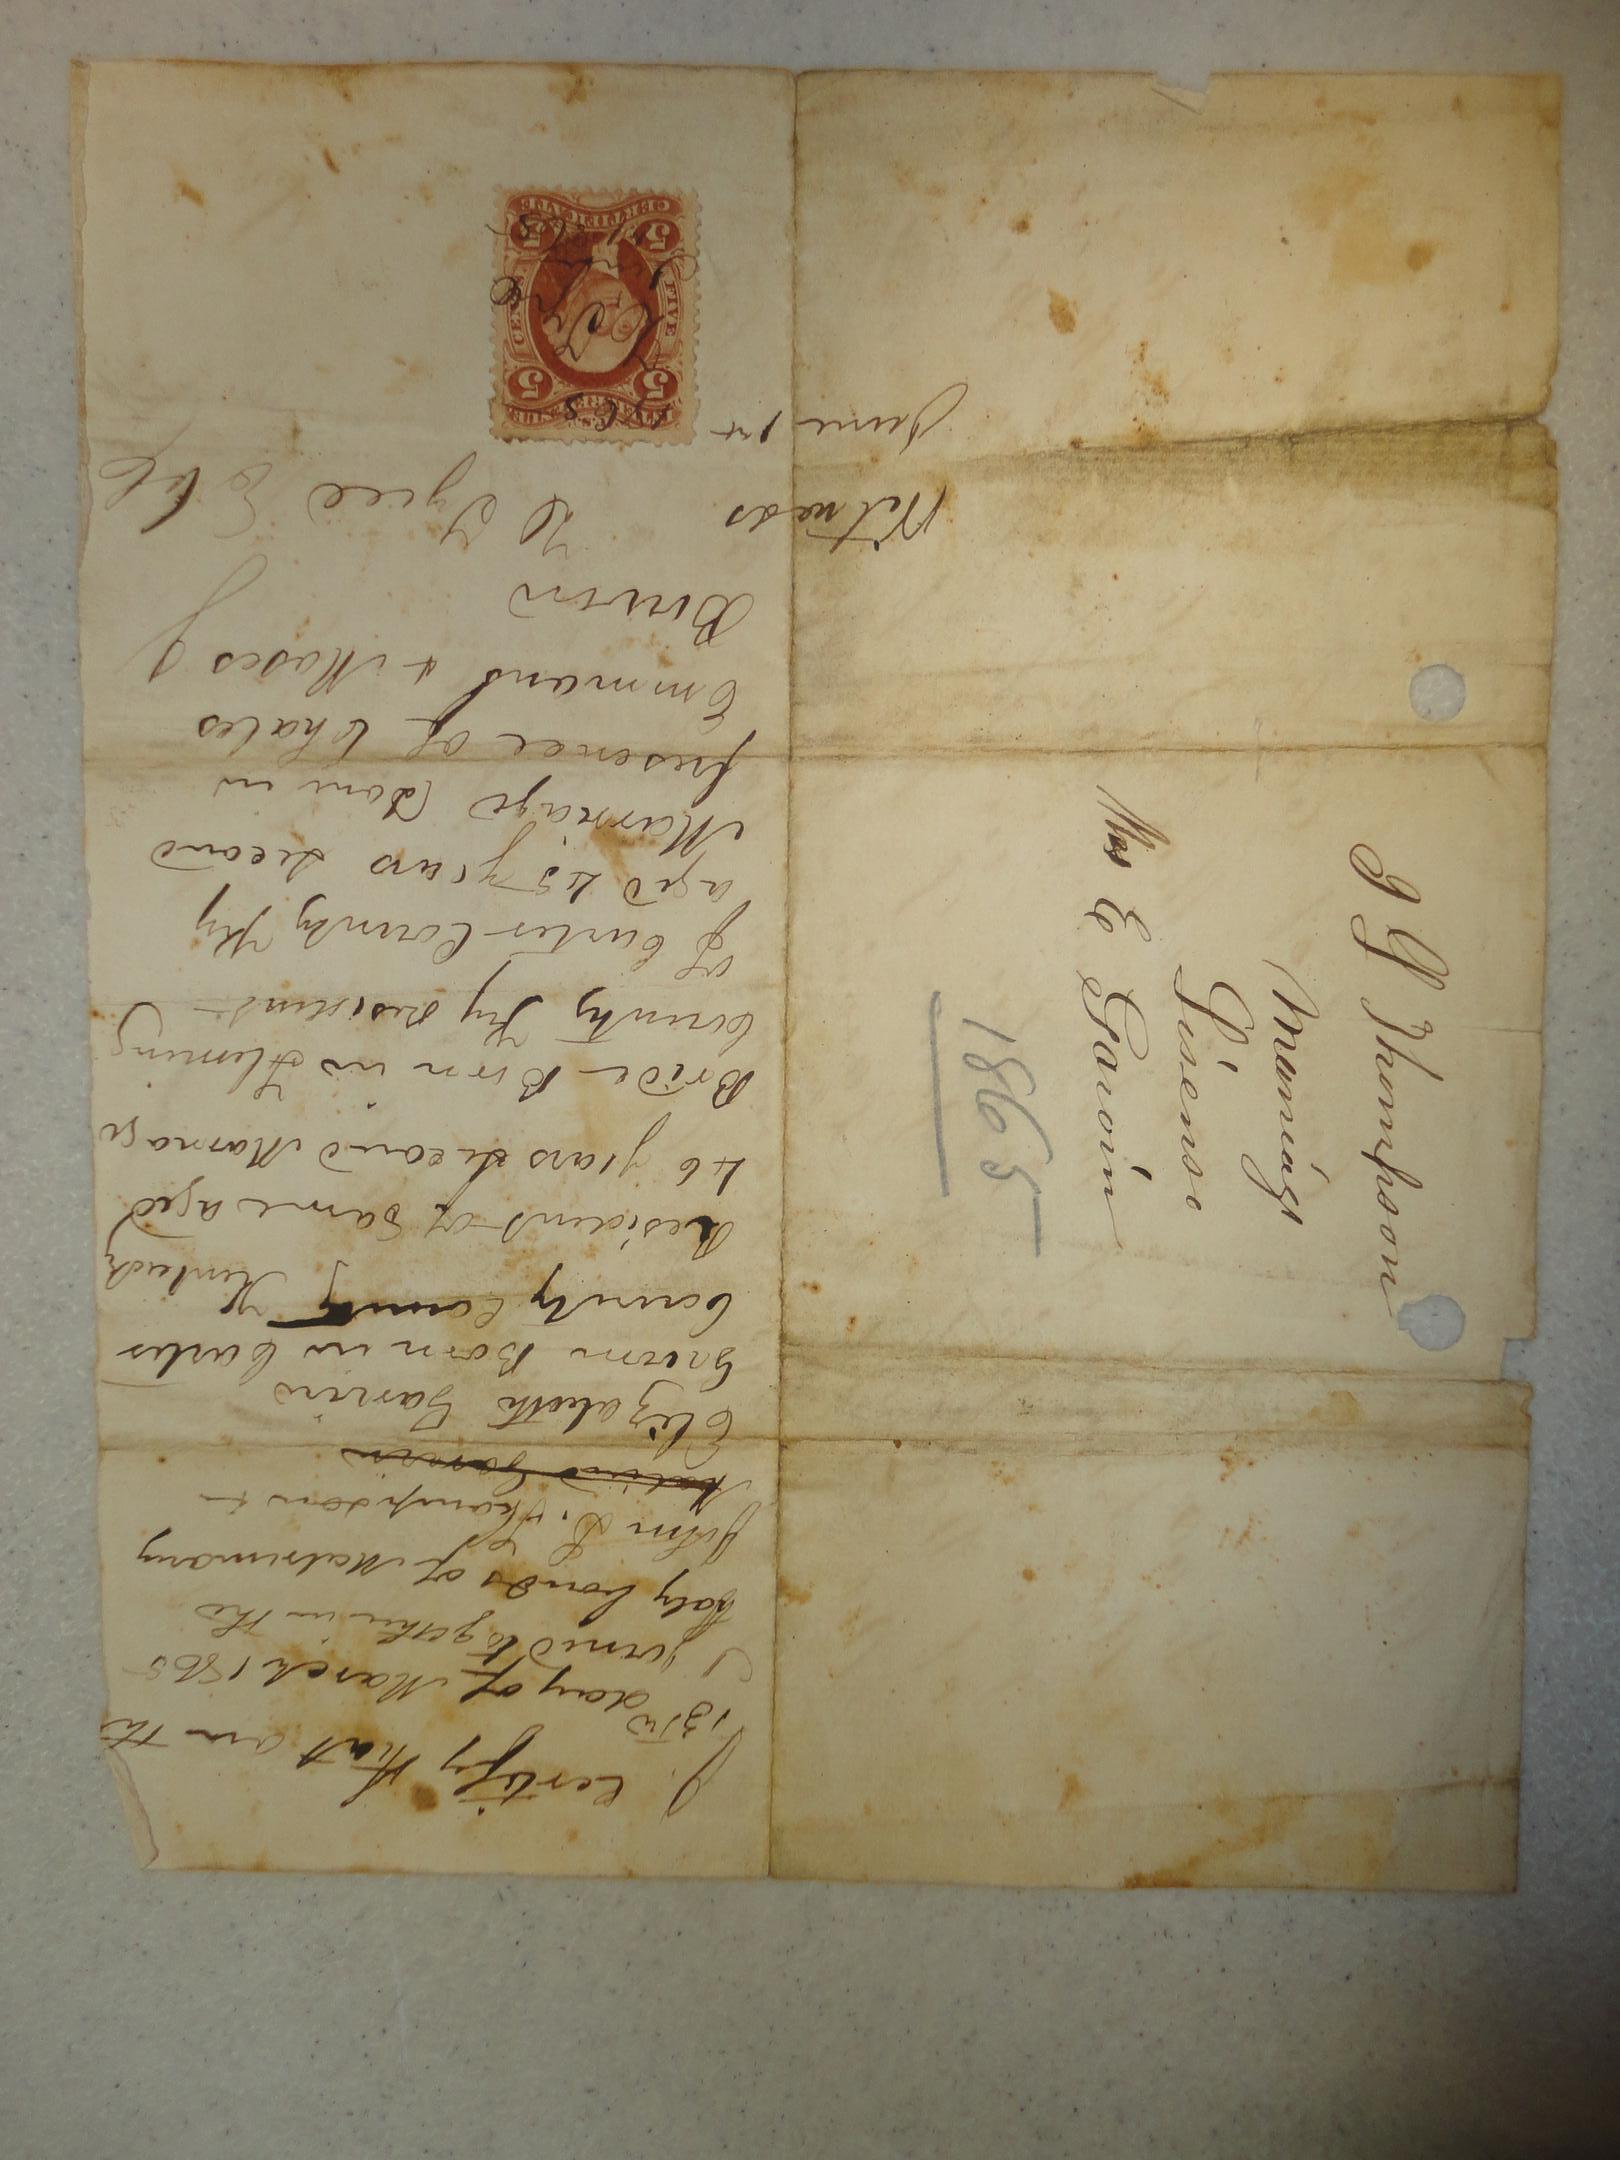 I certify that on the
13th day of March 1865
I joined together in the
Holy bonds of Matrimony
John L. Thompson +
Garvin
Elizabeth Garvin
Groom Born in Carter
County County Ky Kentucky
Resident of Same aged
46 years second Marriage
Bride Born in Fleming
County Ky resident
of Carter County Ky
aged 45 years second
Marriage Done in
presence of Chales
Emmans & Moses J
Witness
June 1st
U.S. INTER. REVENUE
5 5
FIVE CENTS
5 5
CERTIFICATE
1865
J G Thompson
Marriage
Lisense
Mrs E Garvin
1865